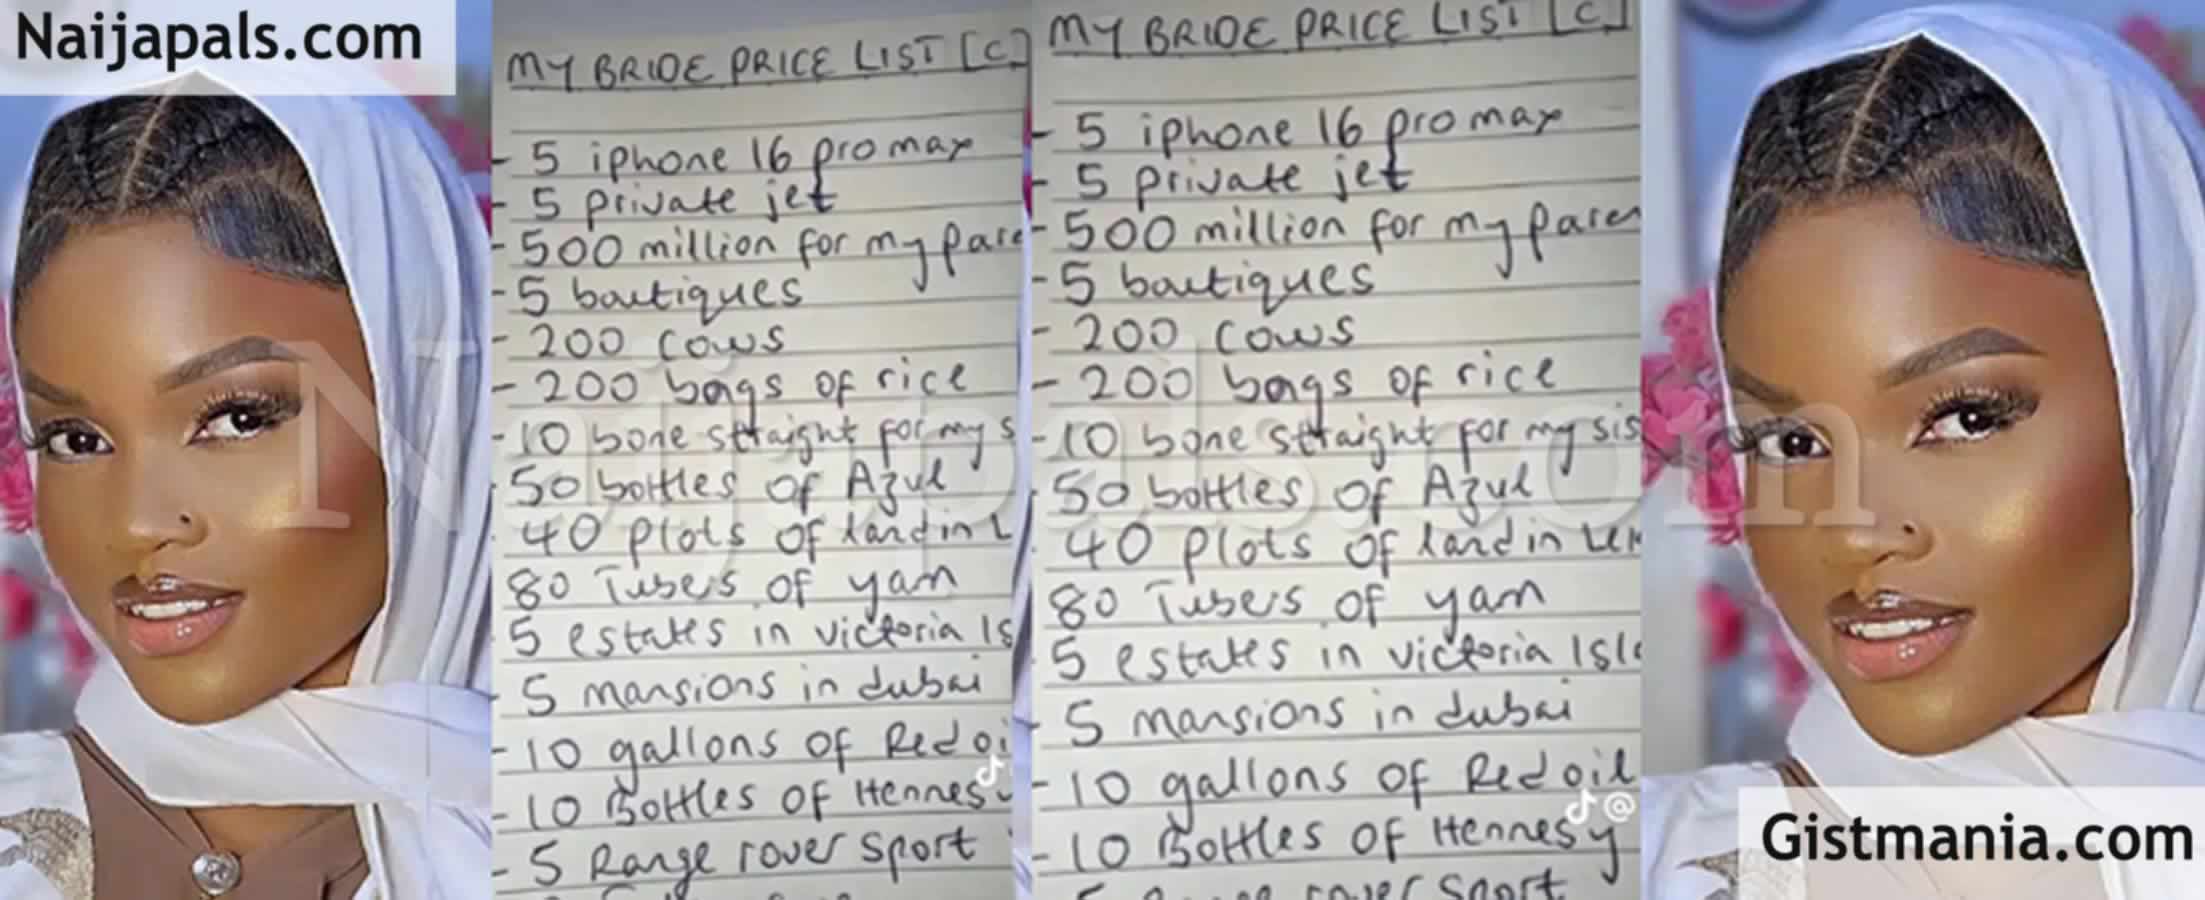 Naijapals.com
MY BRIDE PRICE LIST [C]
- 5 iphone 16 pro max
- 5 private jet
- 500 million for my pare
- 5 boutiques
- 200 cows
- 200 bags of rice
- 10 bone straight for my s
50 bottles of Azul
40 plots of land in L
80 Tubers of yam
5 estates in victoria Is
- 5 mansions in dubai
- 10 gallons of Red oi
- 10 Bottles of Hennes
- 5 Range rover sport
MY BRIDE PRICE LIST [C]
- 5 iphone 16 pro max
- 5 private jet
- 500 million for my paren
- 5 boutiques
- 200 cows
- 200 bags of rice
- 10 bone straight for my sis
50 bottles of Azul
40 plots of land in Lek
80 Tubers of yam
5 estates in victoria Isl
- 5 mansions in dubai
- 10 gallons of Red oil
- 10 Bottles of Hennesy
5 Range rover sport
Naijapals.com
Gistmania.com